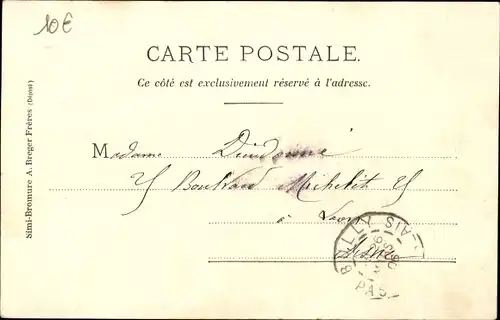 10€
CARTE POSTALE.
Ce côté est exclusivement réservé à l'adresse.
Simi-Bromure A. Breger Frères (Déposé)
Madame Dieudonné
Boulevard Michelet
à Laon
Aisne